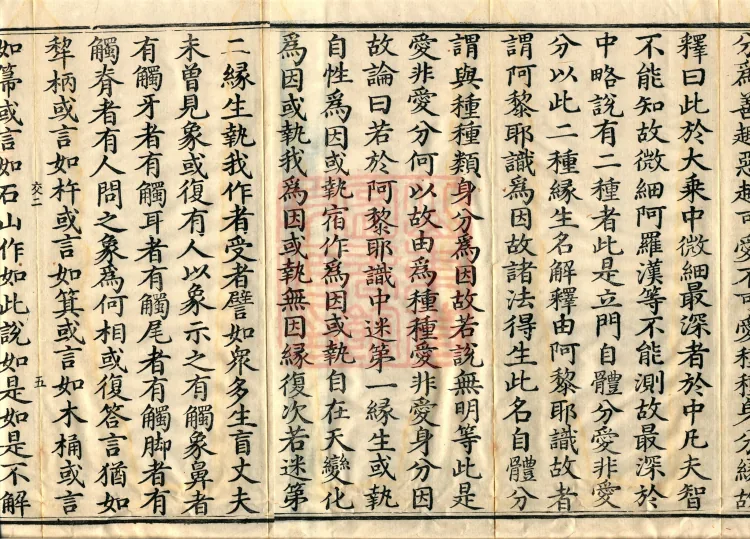 分為善趣惡趣可愛不可愛種種身分緣故
釋曰此於大乘中微細最深者於中凡夫智
不能知故微細阿羅漢等不能測故最深於
中略說有二種者此是立門自體分愛非愛
分以此二種緣生名解釋由阿黎耶識故者
謂阿黎耶識為因故諸法得生此名自體分
謂與種種類身分為因故若說無明等此是
愛非愛分何以故由為種種愛非愛身分因
故論曰若於阿黎耶識中迷第一緣生或執
自性為因或執宿作為因或執自在天變化
為因或執我為因或執無因緣復次若迷第
二緣生執我作者受者譬如眾多生盲丈夫
未曾見象或復有人以象示之有觸象鼻者
有觸牙者有觸耳者有觸尾者有觸脚者有
觸脊者有人問之象為何相或復答言猶如
犂柄或言如杵或言如箕或言如木桶或言
交二 五
如箒或言如石山作如此說如是如是不解